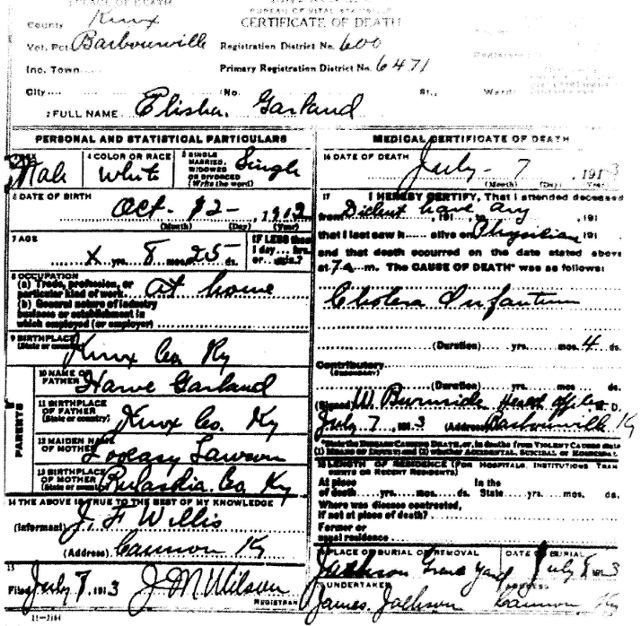 PLACE OF DEATH
BUREAU OF VITAL STATISTICS
CERTIFICATE OF DEATH
County Knox
Vot. Pct Barbourville Registration District No. 600
Inc. Town Primary Registration District No. 6471
City (No. St., Ward)
2 FULL NAME Elisha Garland
PERSONAL AND STATISTICAL PARTICULARS
Male
4 COLOR OR RACE White
5 SINGLE MARRIED, WIDOWED OR DIVORCED (Write the word) Single
6 DATE OF BIRTH Oct - 12 - 1912
(Month) (Day) (Year)
7 AGE x yrs. 8 mos. 25 ds. IF LESS than 1 day ... hrs. or ... min.?
8 OCCUPATION
(a) Trade, profession, or particular kind of work at home
(b) General nature of industry business or establishment in which employed (or employer)
9 BIRTHPLACE (State or country) Knox Co. Ky
PARENTS
10 NAME OF FATHER Harve Garland
11 BIRTHPLACE OF FATHER (State or country) Knox Co. Ky
12 MAIDEN NAME OF MOTHER Lawson
13 BIRTHPLACE OF MOTHER (State or country) Pulaskia Co, Ky
14 THE ABOVE IS TRUE TO THE BEST OF MY KNOWLEDGE
(Informant) J. F Willis
(Address) Cannon Ky
15
Filed July 7 1913 J M Wilson
REGISTRAR
11-3184
MEDICAL CERTIFICATE OF DEATH
16 DATE OF DEATH July - 7 1913
(Month) (Day) (Year)
17 I HEREBY CERTIFY, That I attended deceased
from Dident have any 191 , to 191
that I last saw h alive on Physician 191
and that death occurred on the date stated above
at 7 a m. The CAUSE OF DEATH* was as follows:
Cholera Infantum
(Duration) yrs. mos. 4 ds.
Contributory (SECONDARY)
(Duration) yrs. mos. ds.
(Signed) W. Burnside Health officer M. D.
July 7, 1913 (Address) Barbourville Ky
*State the DISEASE CAUSING DEATH, or, in deaths from VIOLENT CAUSES state
(1) MEANS OF INJURY; and (2) whether ACCIDENTAL, SUICIDAL or HOMICIDAL
18 LENGTH OF RESIDENCE (FOR HOSPITALS, INSTITUTIONS, TRANSIENTS OR RECENT RESIDENTS)
At place of death yrs. mos. ds. In the State yrs. mos. ds.
Where was disease contracted, if not at place of death?
Former or usual residence
PLACE OF BURIAL OR REMOVAL DATE OF BURIAL
Jackson Grave Yard July 8 1913
UNDERTAKER ADDRESS
James Jackson Cannon Ky